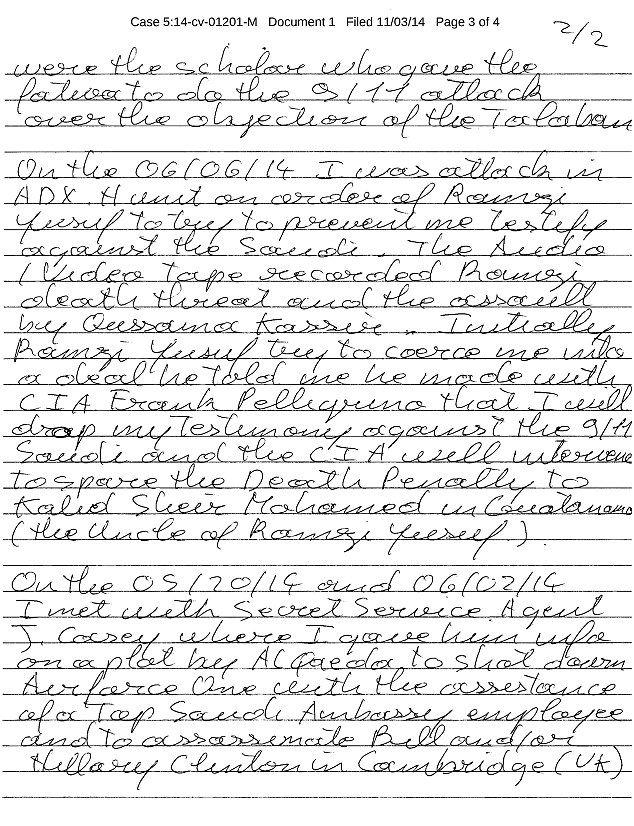 Case 5:14-cv-01201-M Document 1 Filed 11/03/14 Page 3 of 4
2/2
were the scholar who gave the
fatwa to do the 9/11 attack
over the objection of the Talaban
On the 06/06/14 I was attack in
ADX. H unit on order of Ramzi
Yusuf to try to prevent me testify
against the Saudi. The Audio
/Video tape recorded Ramzi
death threat and the assault
by Oussama Kassir. Initially
Ramzi Yusuf try to coerce me into
a deal he told me he made with
CIA Frank Pellegrino that I will
drop my testimony against the 9/11
Saudi and the CIA will intervene
to spare the Death Penalty to
Kalid Sheir Mohamed in Guatanamo
(the Uncle of Ramzi Yusuf.)
On the 05/20/14 and 06/02/14
I met with Secret Service Agent
J. Casey where I gave him info
on a plot by Al Qaeda to shot down
Airforce One with the assistance
of a Top Saudi Ambassy employee
and to assassinate Bill and/or
Hillary Clinton in Cambridge (UK)